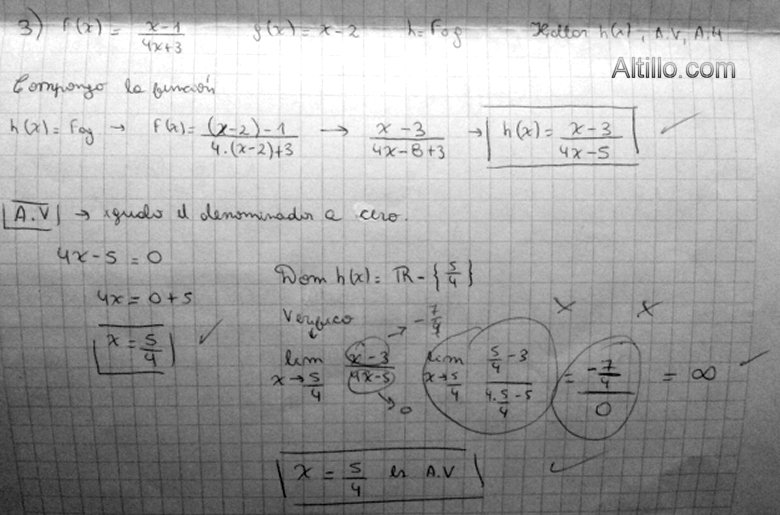 3) f(x) = x-1 / 4x+3   g(x) = x-2   h = Fog   Hallar h(x), A.V, A.H
Altillo.com
Compongo la función
h(x) = Fog → f(x) = (x-2)-1 / 4.(x-2)+3 → x-3 / 4x-8+3 → h(x) = x-3 / 4x-5 ✓
A.V → igualo el denominador a cero.
4x-5 = 0
Dom h(x) = R - {5/4}
4x = 0+5
x = 5/4 ✓
Verifico → -7/4   x   x
lim x→5/4 x-3 / 4x-5 → 0   lim x→5/4 5/4 -3 / 4.5/4 -5 = -7/4 / 0 = ∞ ✓
x = 5/4 es A.V ✓